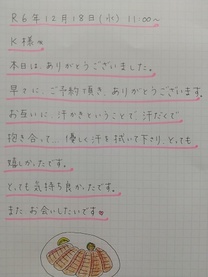 R6年12月18日(水) 11:00〜
K様♥
本日は、ありがとうございました。
早々に、ご予約頂き、ありがとうございます。
お互いに、汗かきということで、汗だくで
抱き合って…優しく汗を拭いて下さり、とっても
嬉しかったです。
とっても気持ち良かったです。
また お会いしたいです♥